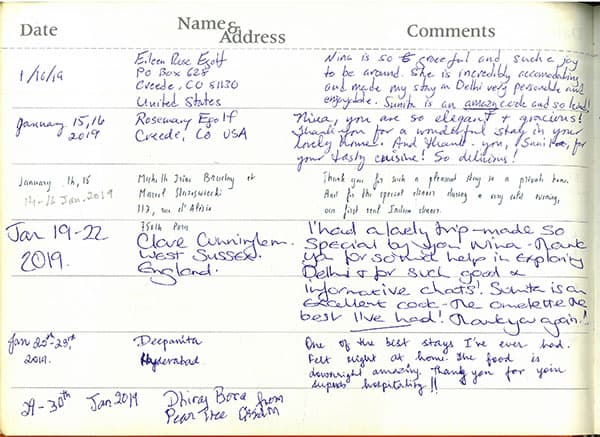 Date
Name & Address
Comments
1/16/19
Eileen Rose Egolf
PO Box 628
Creede, CO 81130
United States
Nina is so graceful and such a joy
to be around. She is incredibly accomodating
and made my stay in Delhi very personable and
enjoyable. Sunita is an amazing cook and so kind!
January 15, 16
2019
Rosemary Egolf
Creede, CO USA
Nina, you are so elegant + gracious!
Thank you for a wonderful stay in your
lovely home. And thank you, Sunita, for
your tasty cuisine! So delicious!
January 14, 15
14-16 Jan. 2019
et
Marcel
117, rue d'Alésia
75014 Paris
Thank you for such a pleasant stay in a private home.
And for the special dinner during a very cold evening,
our first real Indian dinner.
Jan 19-22
2019.
Clare Cunningham.
West Sussex.
England.
I had a lovely trip - made so
special by you Nina - Thank
you for so much help in exploring
Delhi & for such good &
informative chats! Sunita is an
excellent cook - the omelette the
best I've had! Thank you again!
Jan 25th-28th,
2019.
Deepanita
Hyderabad
One of the best stays I've ever had.
Felt right at home. The food is
downright amazing. Thank you for your
superb hospitality!!
29-30th Jan 2019
Dhiraj Bora from
Pear Tree